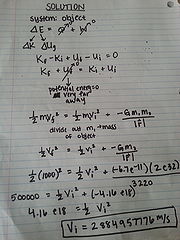 SOLUTION
system: object
ΔE = Q + W
ΔK ΔUg
Kf - Ki + Uf - Ui = 0
Kf + Uf = Ki + Ui
potential energy = 0
very far
away
½mvf² = ½mvi² + -Gm₁m₂/|r|
divide out m, → mass
of object
½vf² = ½vi² + -Gm₁/|r|
½(1000)² = ½vi² + (-6.7e-11)(2e32)/3220
500000 = ½vi² + (-4.16e18)
4.16e18 = ½vi²
Vi = 2884957776 m/s